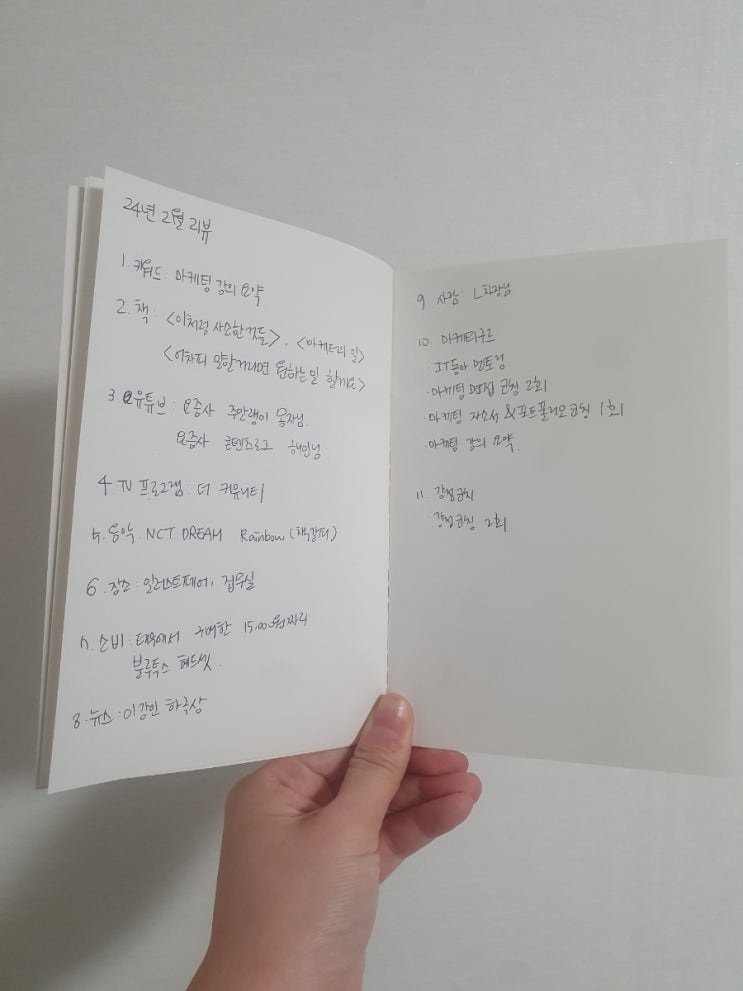 24년 2월 리뷰
1. 키워드: 마케팅 강의 요약
2. 책: <이처럼 사소한 것들>, <마케터의 일>
<어차피 일할거라면 원하는 일 할게요>
3. 유튜브: 요즘사
요즘사 콘텐츠로그 해인님
4. TV 프로그램: 더 커뮤니티
5. 음악. NCT DREAM Rainbow (책갈피)
6. 장소: 일러스트페어, 집무실
7. 소비: 테무에서 구매한 15,000원짜리
블루투스 헤드셋.
8. 뉴스: 이강인 하극상
9 사람: L차장님
10. 마케터구르
· IT동아 멘토링
· 마케팅 면접 코칭 2회
· 마케팅 자소서 & 포트폴리오 코칭 1회
· 마케팅 강의 요약
11. 강점코치
강점코칭 2회